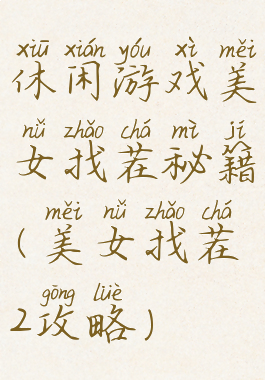 xiū xián yóu xì měi
休闲游戏美
nǚ zhǎo chá mì jí
女找茬秘籍
měi nǚ zhǎo chá
(美女找茬
gōng lüè
2攻略)